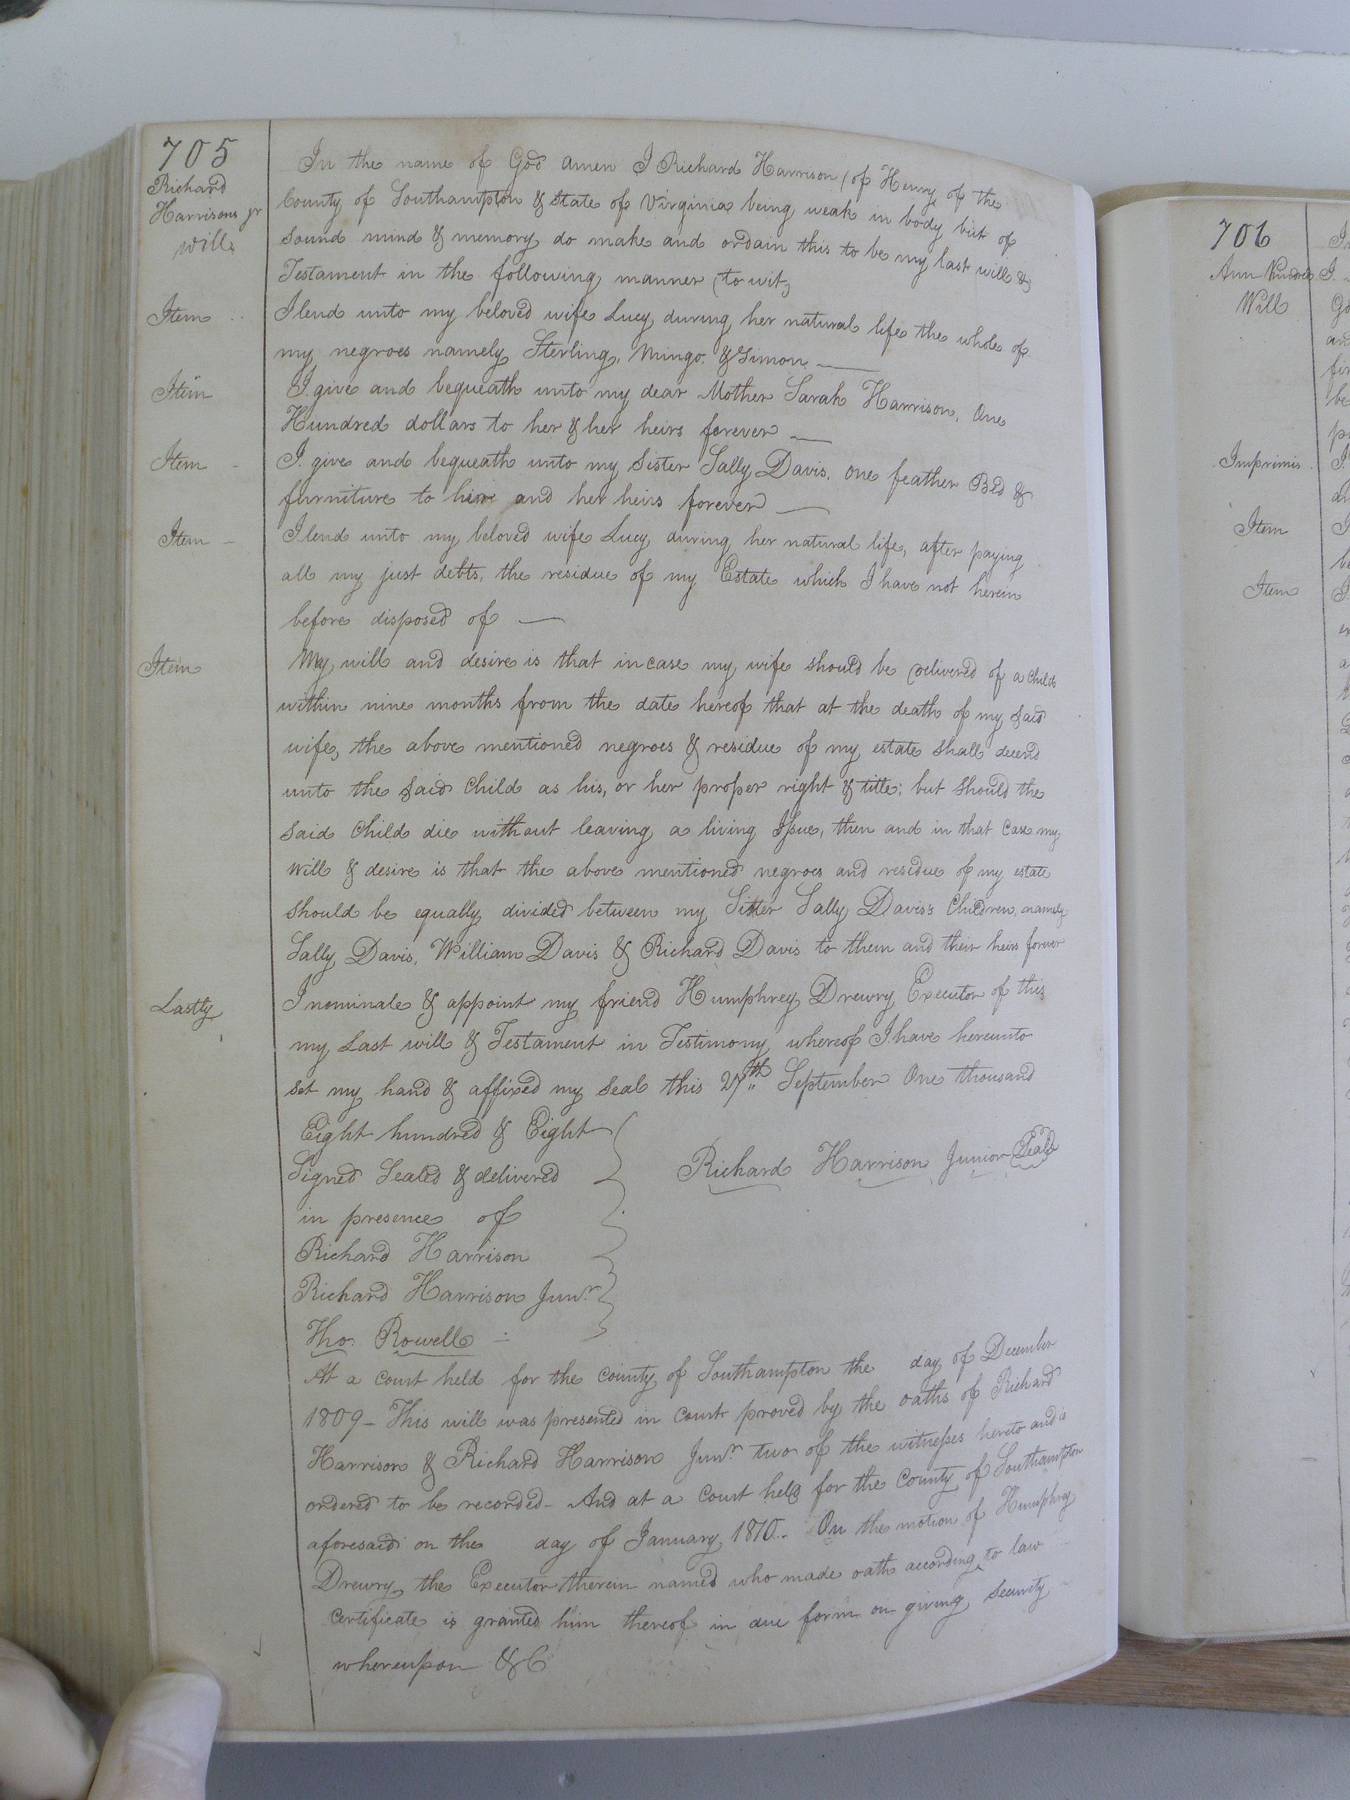 705
Richard
Harrisons jr
Will
In the name of God amen I Richard Harrison (of Henry of the
County of Southampton & State of Virginia being weak in body but of
sound mind & memory do make and ordain this to be my last will &
Testament in the following manner (to wit,
Item I lend unto my beloved wife Lucy during her natural life the whole of
my negroes namely Sterling, Mingo & Simon
Item I give and bequeath unto my dear Mother Sarah Harrison, One
Hundred dollars to her & her heirs forever
Item I give and bequeath unto my Sister Sally Davis, one feather Bed &
furniture to her and her heirs forever
Item I lend unto my beloved wife Lucy during her natural life, after paying
all my just debts, the residue of my Estate which I have not herein
before disposed of
Item My will and desire is that incase my wife should be delivered of a child
within nine months from the date hereof that at the death of my said
wife, the above mentioned negroes & residue of my estate shall decend
unto the said Child as his, or her proper right & title; but should the
said Child die without leaving a living Issue, then and in that Case my
Will & desire is that the above mentioned negroes and residue of my estate
should be equally divided between my Sister Sally Davis's Children, namely
Sally Davis, William Davis & Richard Davis to them and their heirs forever
Lastly I nominate & appoint my friend Humphrey Drewry Executor of this
my Last will & Testament in Testimony whereof I have hereunto
set my hand & affixed my seal this 27th September One thousand
Eight hundred & Eight
Signed Sealed & delivered
Richard Harrison Junior Seal
in presence of
Richard Harrison
Richard Harrison Junr
Tho. Rowell
At a court held for the county of Southampton the day of December
1809 – This will was presented in Court proved by the oaths of Richard
Harrison & Richard Harrison Junr two of the witnesses hereto and is
ordered to be recorded – And at a Court held for the County of Southampton
aforesaid on the day of January 1810. On the motion of Humphrey
Drewry the Executor therein named who made oath according to law
certificate is granted him thereof in due form on giving security
whereupon &C
706
Ann
Will
Imprimis
Item
Item